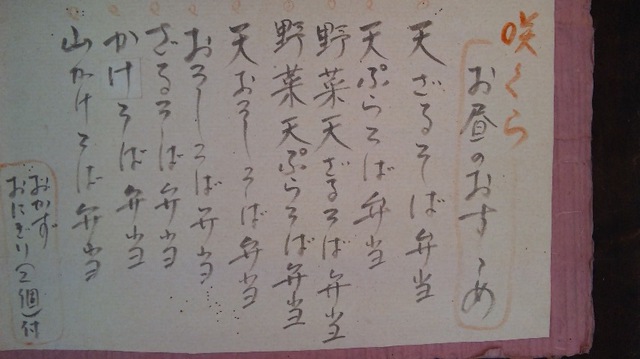 咲くら
お昼のおすゝめ
天ざるそば弁当
天ぷらそば弁当
野菜天ざるそば弁当
野菜天ぷらそば弁当
天おろしそば弁当
おろしそば弁当
ざるそば弁当
かけそば弁当
山かけそば弁当
おかず
おにぎり(2個)付